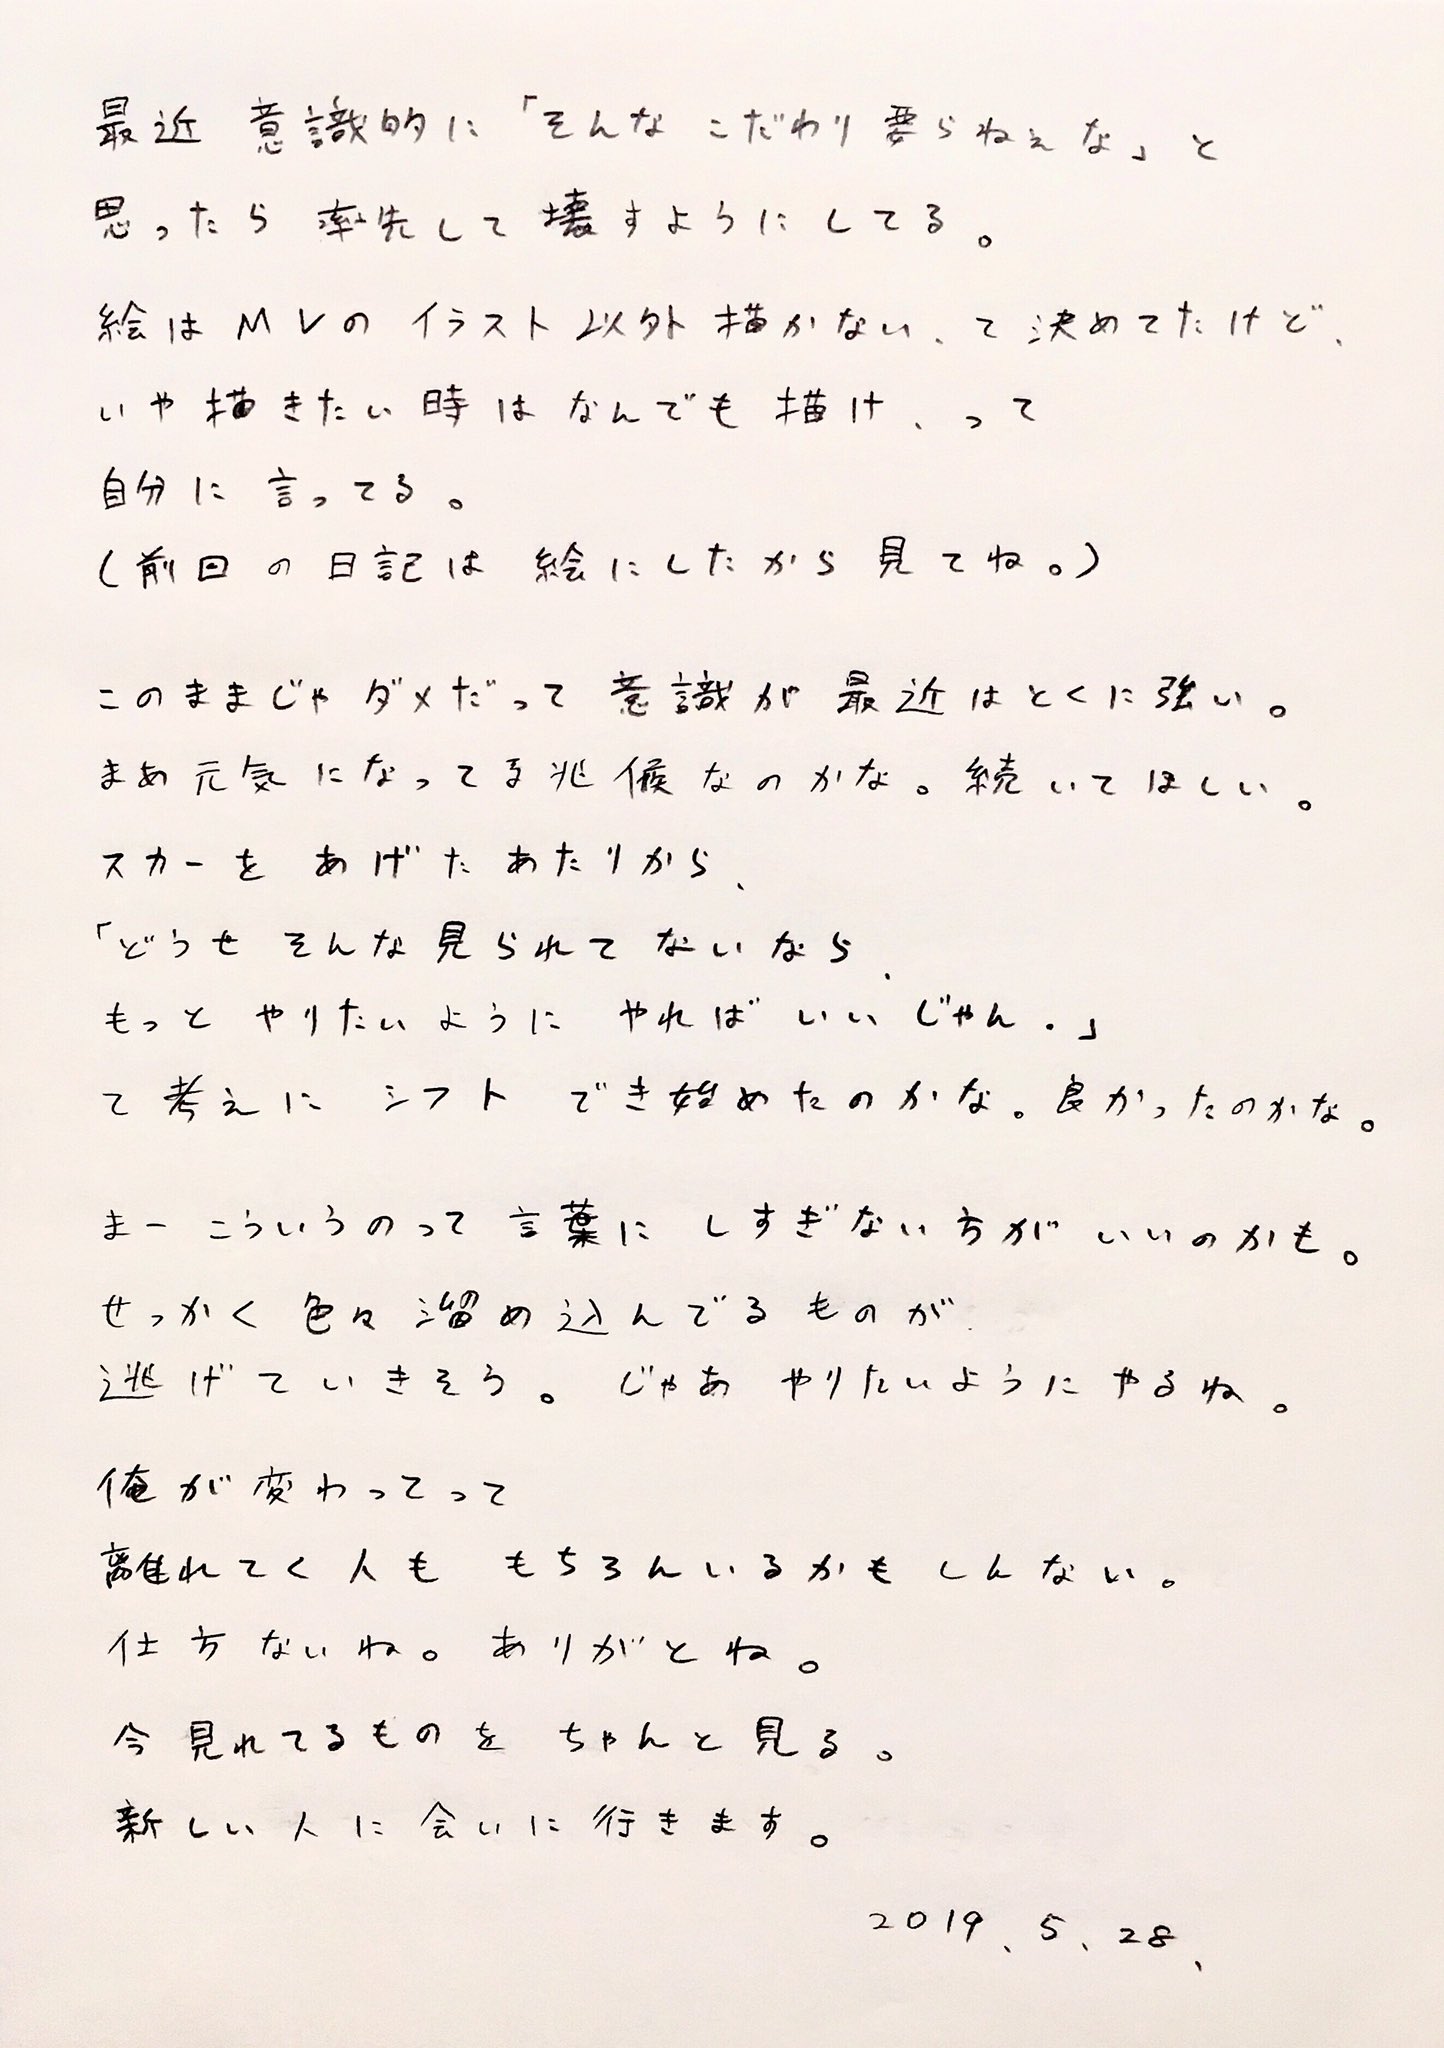 最近 意識的に「そんな こだわり要らねぇな」と
思ったら 率先して壊すようにしてる。
絵はMVのイラスト以外描かない、て決めてたけど、
いや描きたい時はなんでも描け、って
自分に言ってる。
(前回の日記は 絵にしたから見てね。)
このままじゃダメだって意識が 最近はとくに強い。
まあ元気になってる兆候なのかな。続いてほしい。
スカーを あげたあたりから、
「どうせ そんな見られてないなら、
もっと やりたいように やればいいじゃん.」
て考えに シフト でき始めたのかな。良かったのかな。
まー こういうのって言葉に しすぎない方がいいのかも。
せっかく色々溜め込んでるものが
逃げていきそう。 じゃあ やりたいようにやるね。
俺が変わってって
離れてく人も もちろんいるかもしんない。
仕方ないね。ありがとね。
今見れてるものを ちゃんと見る。
新しい人に会いに行きます。
2019、5、28、